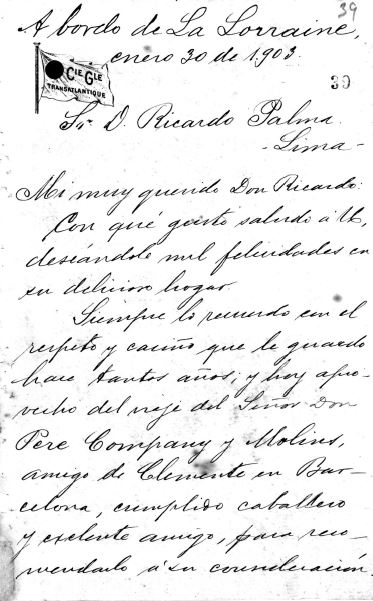 39
A bordo de La Lorraine,
enero 30 de 1903.
Cie Gle
TRANSATLANTIQUE
39
Sr. D. Ricardo Palma.
-Lima-
Mi muy querido Don Ricardo:
Con qué gusto saludo á U,
deseándole mil felicidades en
su delicioso hogar.
Siempre lo recuerdo con el
respeto y cariño que le guardo
hace tantos años; y hoy apro-
vecho del viaje del Señor Don
Pere Company y Molins,
amigo de Clemente en Bar-
celona, cumplido caballero
y exelente amigo, para reco-
mendarlo á su consideración.